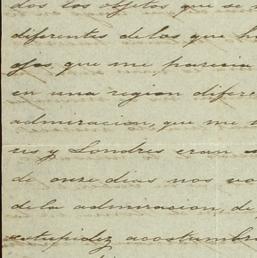 dos los objetos que se
diferentes de los que h
que me parecia
en una region difere
admiracion, que me
ris y Londres eran
de onze dias nos
de la admiracion, de
estupidez acostumbr